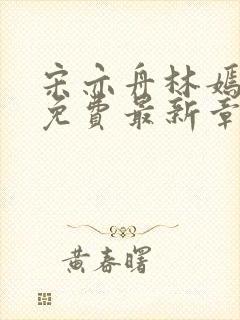 宋亦舟林嫣
免費最新章
黃春曙